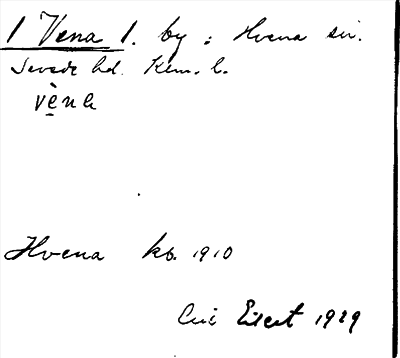 1 Vena 1. by i Hvena sn.
Sevede hd. Kalm. l.
vèna
Hvena kb. 1910
Eivert 1929